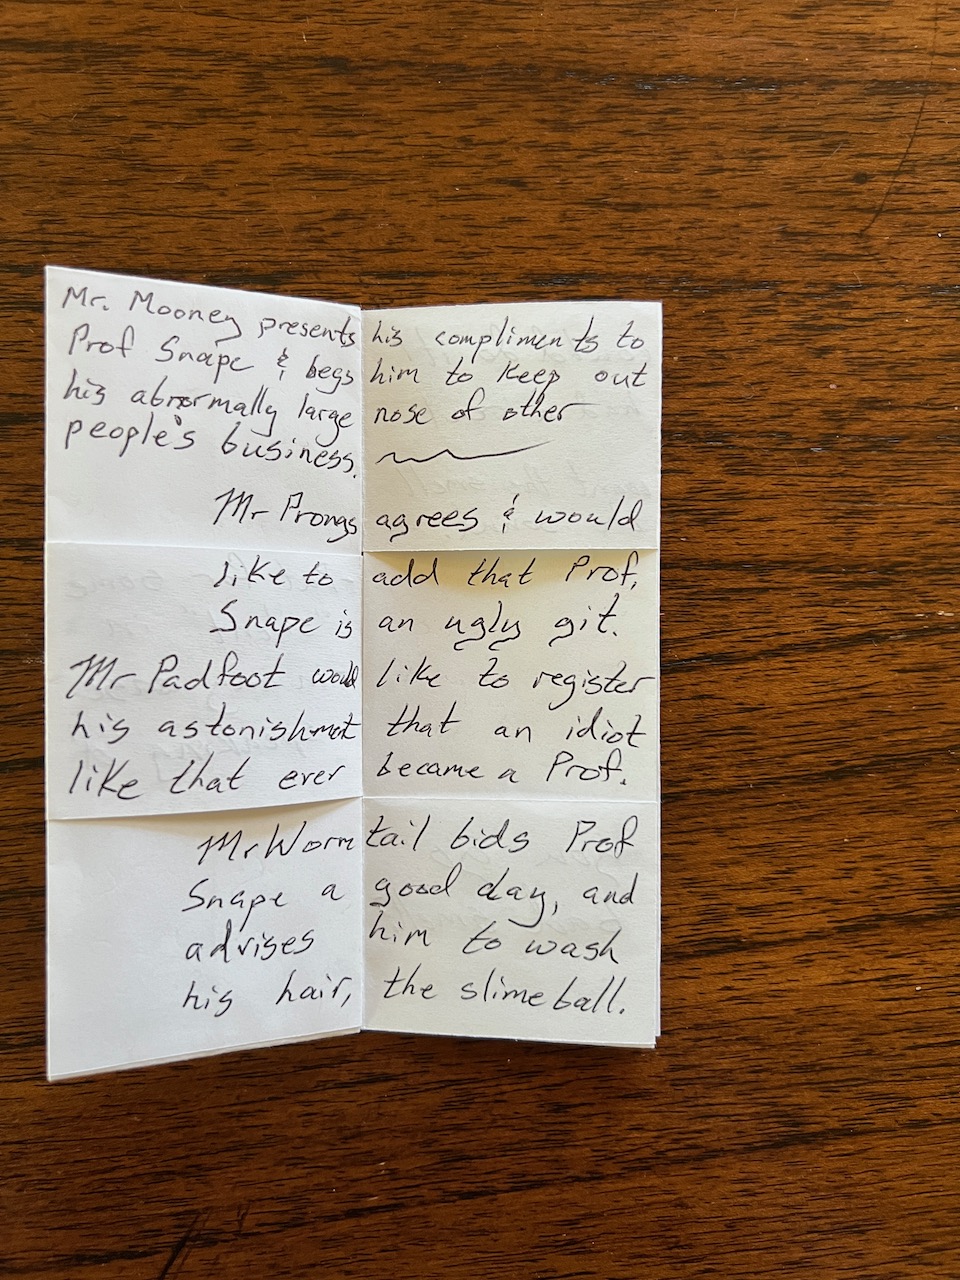 Mr. Mooney presents his compliments to
Prof Snape & begs him to keep out
his abnormally large nose of other
people's business.
Mr Prongs agrees & would
like to add that Prof,
Snape is an ugly git.
Mr Padfoot would like to register
his astonishment that an idiot
like that ever became a Prof.
Mr Worm tail bids Prof
Snape a good day, and
advises him to wash
his hair, the slimeball.